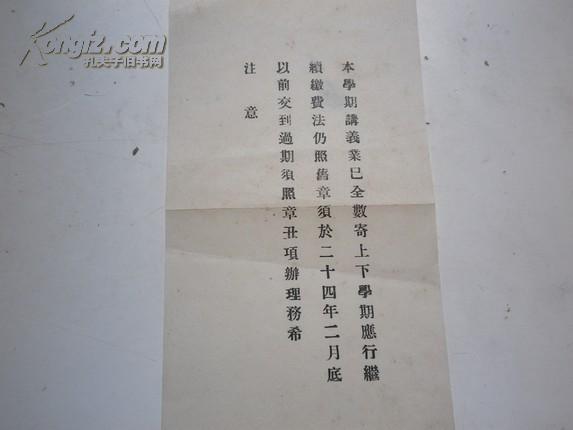 本學期講義業已全數寄上下學期應行繼
續繳費法仍照舊章須於二十四年二月底
以前交到過期須照章丑項辦理務希
注意
Kongfz.com
孔夫子旧书网